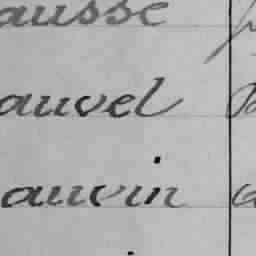 ausse
auvel
auvin